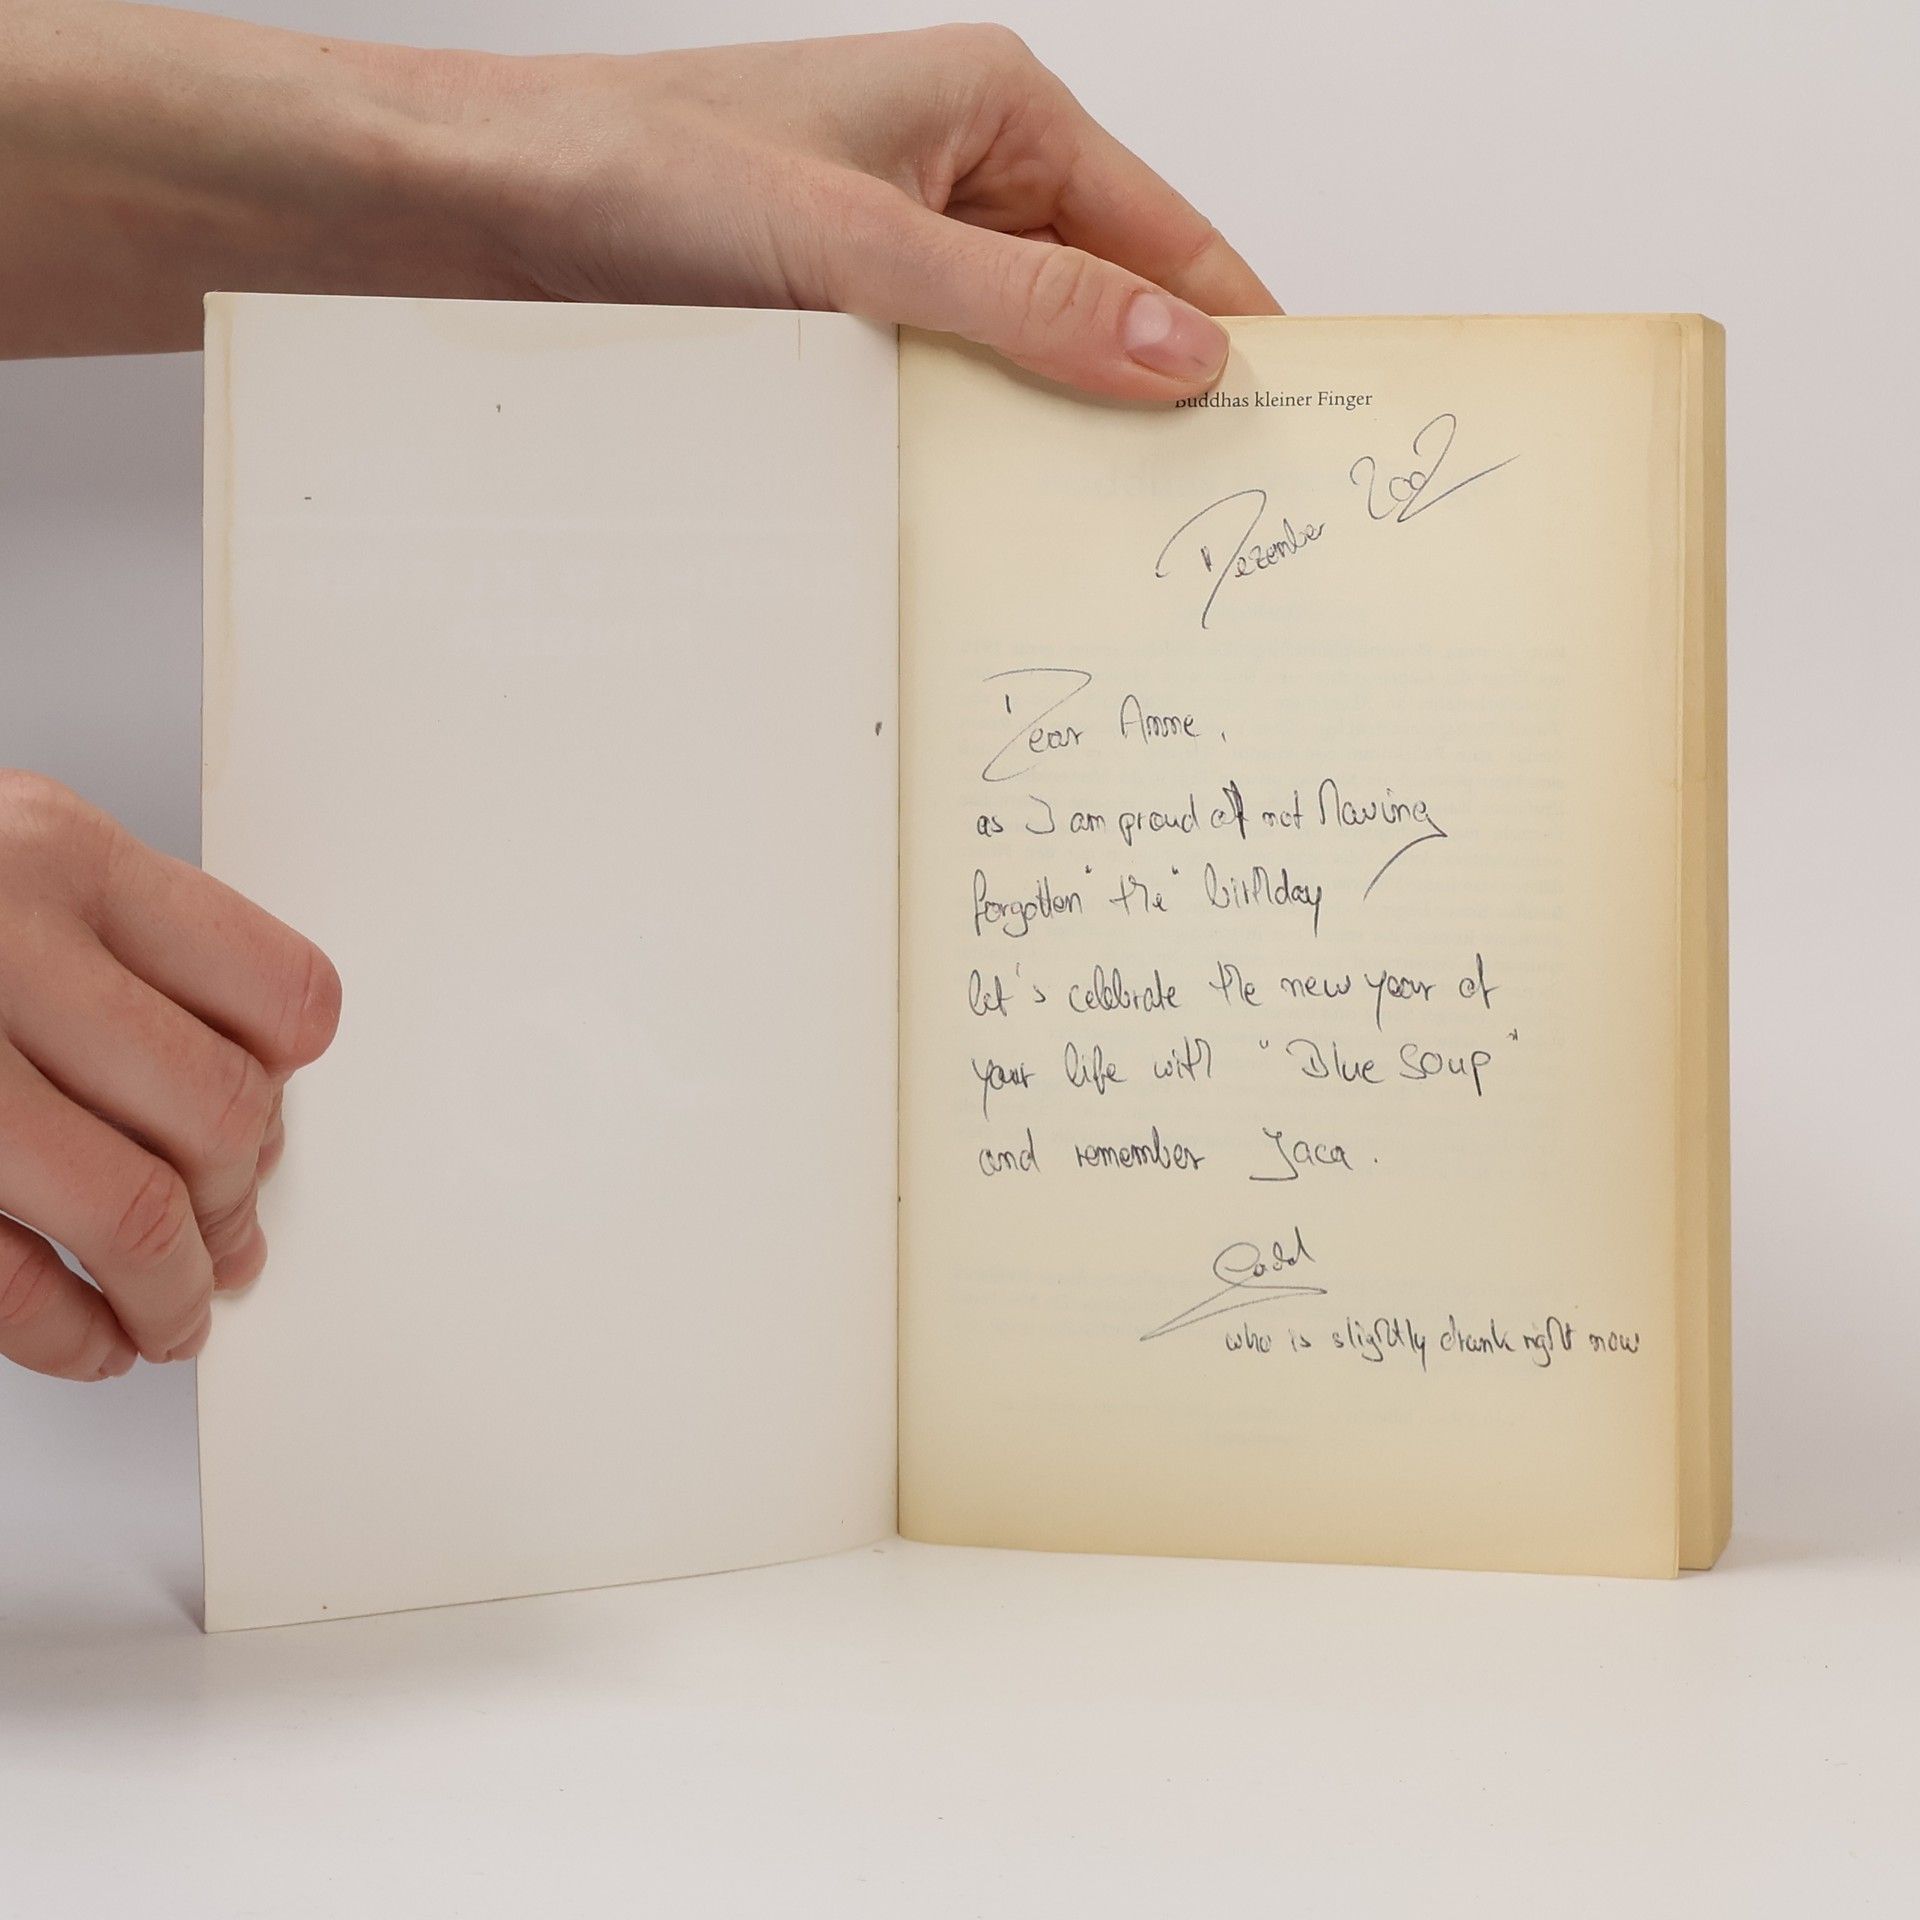 Buddhas kleiner Finger
Dezember 2002
Dear Anne,
as I am proud of not having
forgotten "the" birthday
let's celebrate the new year of
your life with "Blue Soup"
and remember Jaca.
who is slightly drunk right now